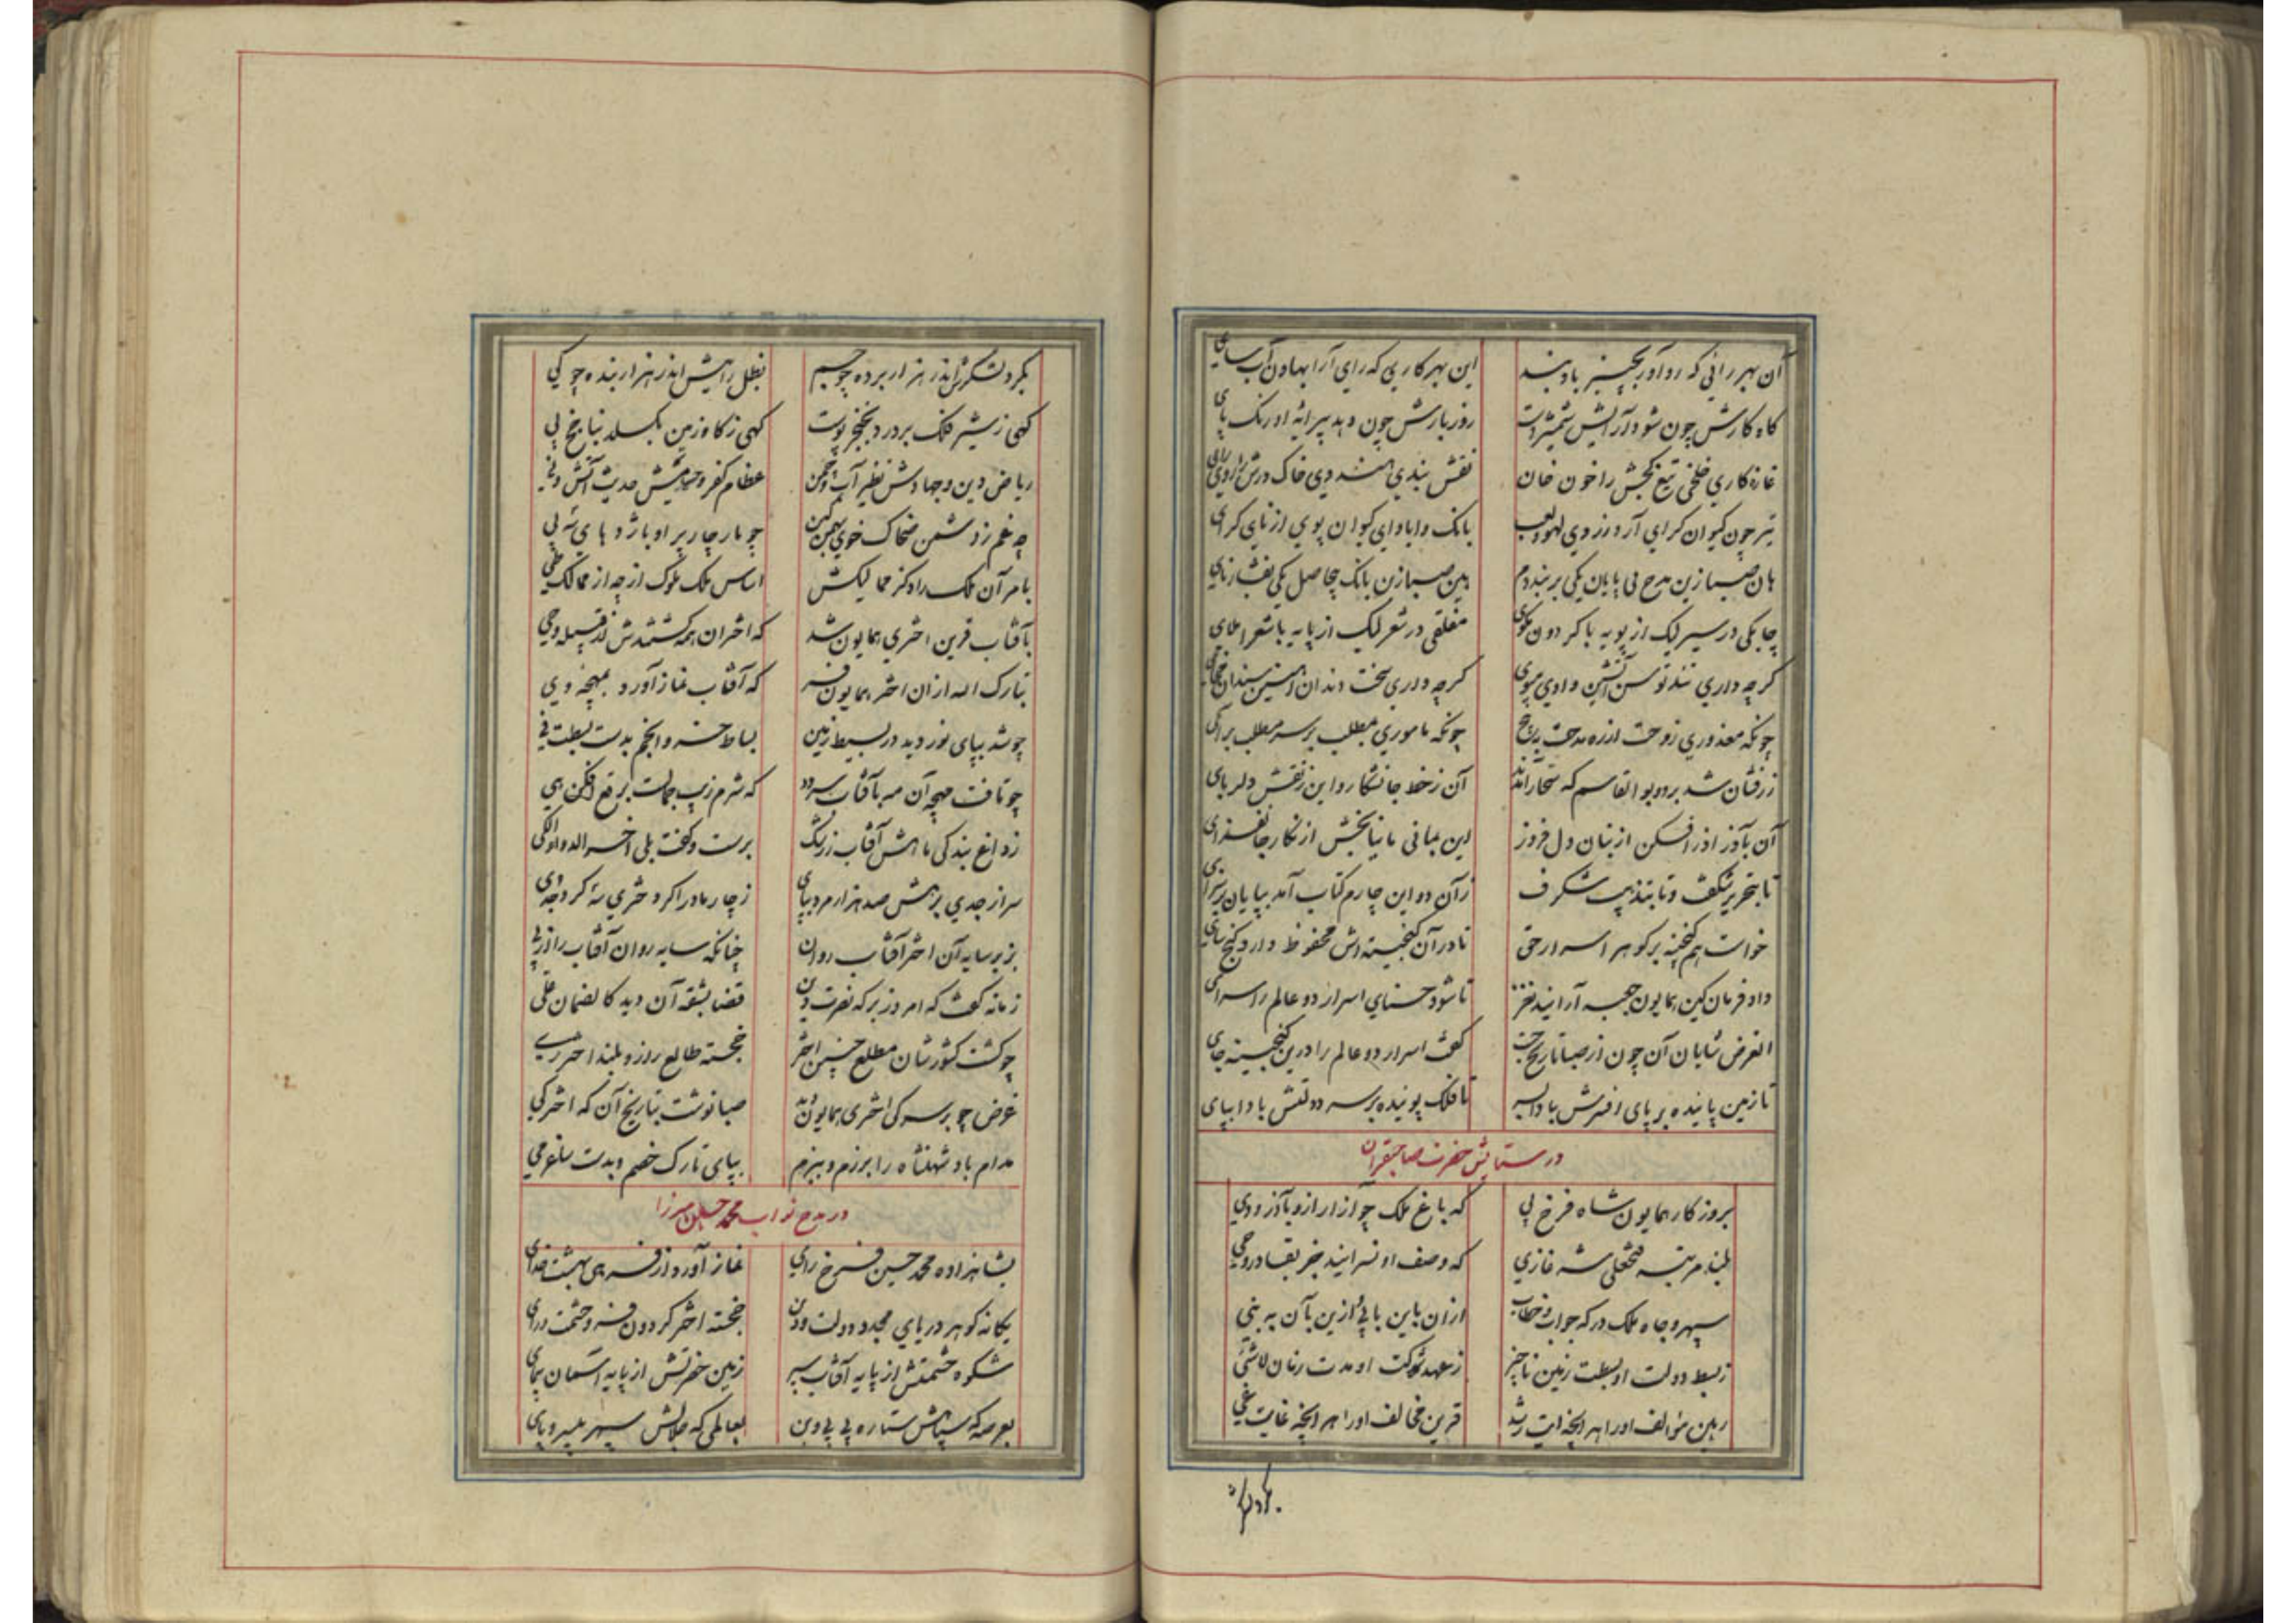 آن بهر رانی که رو آور بچیز باد بند این بهر کاری که رای آرا بهاون آب سای
گاه کارش چون شود آرایش شمشیر دست روز بارش چون دهد پیرایه اورنک پای
غازه کاری خلخی تیغ کجش را خون خان نقش بندی خاک درش را روی رای
تیر چون کیوان کرای آرد ز دی لهو و لعب بانک وایاوای کیوان پوی از نای کرای
هان صبا زین مدح بی پایان یکی بر بند دم بین صبا زین بانک بیحاصل یکی بفشار نای
چابکی در سیر لیک از پویه با کردون مپوی مفلقی در شعر لیک از پایه با شعرا ملای
کرچه داری تند توسن آتشین وادی مپوی کرچه داری سخت دندان آهنین سندان مخای
چونکه معذوری ز وحت از ره مدحت برنج چونکه ماموری بمطلب بر سر مطلب برای
زرفشان شد بر دو بوالقاسم که آن ز خط جانشکار و این ز نقش دلربای
آن بآذر آذر افکن از بنان دل فروز این بمانی مانیا بخش از نکار جانفزای
تا بتحریر شکفت و تا بتذهیب شکرف زآن دو این چارم کتاب آمد بپایان
خواست هم کنجینه بر کوهر اسرار حق تا در آن کنجینه اش محفوظ دارد کنج سای
داد فرمان کین همایون جعبه آرایند نغز تا شود اسرار دو عالم را سرای
الغرض شایان آن چون از صبا تاریخ جست کفت اسرار دو عالم را درین کنجینه جای
تا زمین پاینده بر پای افسرش بادا بسر تا فلک پوینده بر سر دولتش بادا بپای
در ستایش حضرت صاحبقران
بروزکار همایون شاه فرخ پی که باغ ملک چو آزار ازو بآذر و دی
بلند مرتبه فتحعلی شه غازی که وصف او نسرایند جز بقادر و حی
سپهر و جاه ملک درکه جواب و خطاب ازان باین یا بی ازین بآن یه بنی
ز بسط دولت او بسطت زمین ناچیز ز عهد شوکت او مدت زمان لاشئ
رهین مؤالف او را بهر آنچه آیت رشد قرین مخالف او را بهر آنچه غایت غی
بکرد لشکرش اندر هزار برده چو جم بظل رایتش اندر هزار بنده چو کی
کهی ز شیر فلک بردرد بخنجر پوست کهی ز کاو زمین بکسلد بناچخ پی
ریاض دین و جهادش نظیر آب و چمن عظام کفر و حسامش حدیث آتش و نی
چه غم ز دشمن ضحاک خوی چو مار چار پر او با اژدهای نه پی
بامر آن ملک راد کز ممالیکش اساس ملک ملوک ار چه از ممالک طی
بآفتاب قرین اختری همایون شد که اختران همه کشتندش از قبیله و حی
تبارک الله ازان اختر همایون فر که آفتاب نماز آورد بمهچه وی
چو شد بپای نوردید در بسیط زمین بساط حسن و انجم بدست بسطت فی
چو تافت مهچه آن مه بآفتاب سرود که شرم زیب جمالت برقع افکن هی
ز داغ بندکی ماهش آفتاب زرنک برست و کفت بلی آخر الدواء الکی
سر از جدی برهش صد هزار مرد بپای ز چار مادر اکر دختری نه کرد جدی
بزیر سایه آن اختر آفتاب روان چنانکه سایه روان آفتاب را از پی
زمانه کفت که امروز هر که نصرت دین قضا بشقه آن دید کالضمان علی
چو کشت کشورشان مطلع چنین اختر خجسته طالع روز و بلند اختر ری
غرض چو بر سر کی اختری همایون شد صبا نوشت بتاریخ آن که اختر کی
مدام باد شهنشاه را برزم و ببزم بپای تارک خصم و بدست ساغر می
در مدح نواب محمد حسین میرزا
بشاهزاده محمد حسین فرخ رای نماز آورد از فر همی بهشت خدای
یکانه کوهر دریای مجد و دولت و دین خجسته اختر کردون فر و حشمت و رای
شکوه حشمتش از پایه آفتاب سپر زمین حضرتش از پایه آسمان پیمای
بعرصه که سپاهش ستاره پی پی و بن بعالمی که جلالش سپهر بی سر و پای
بکرد لشکرش